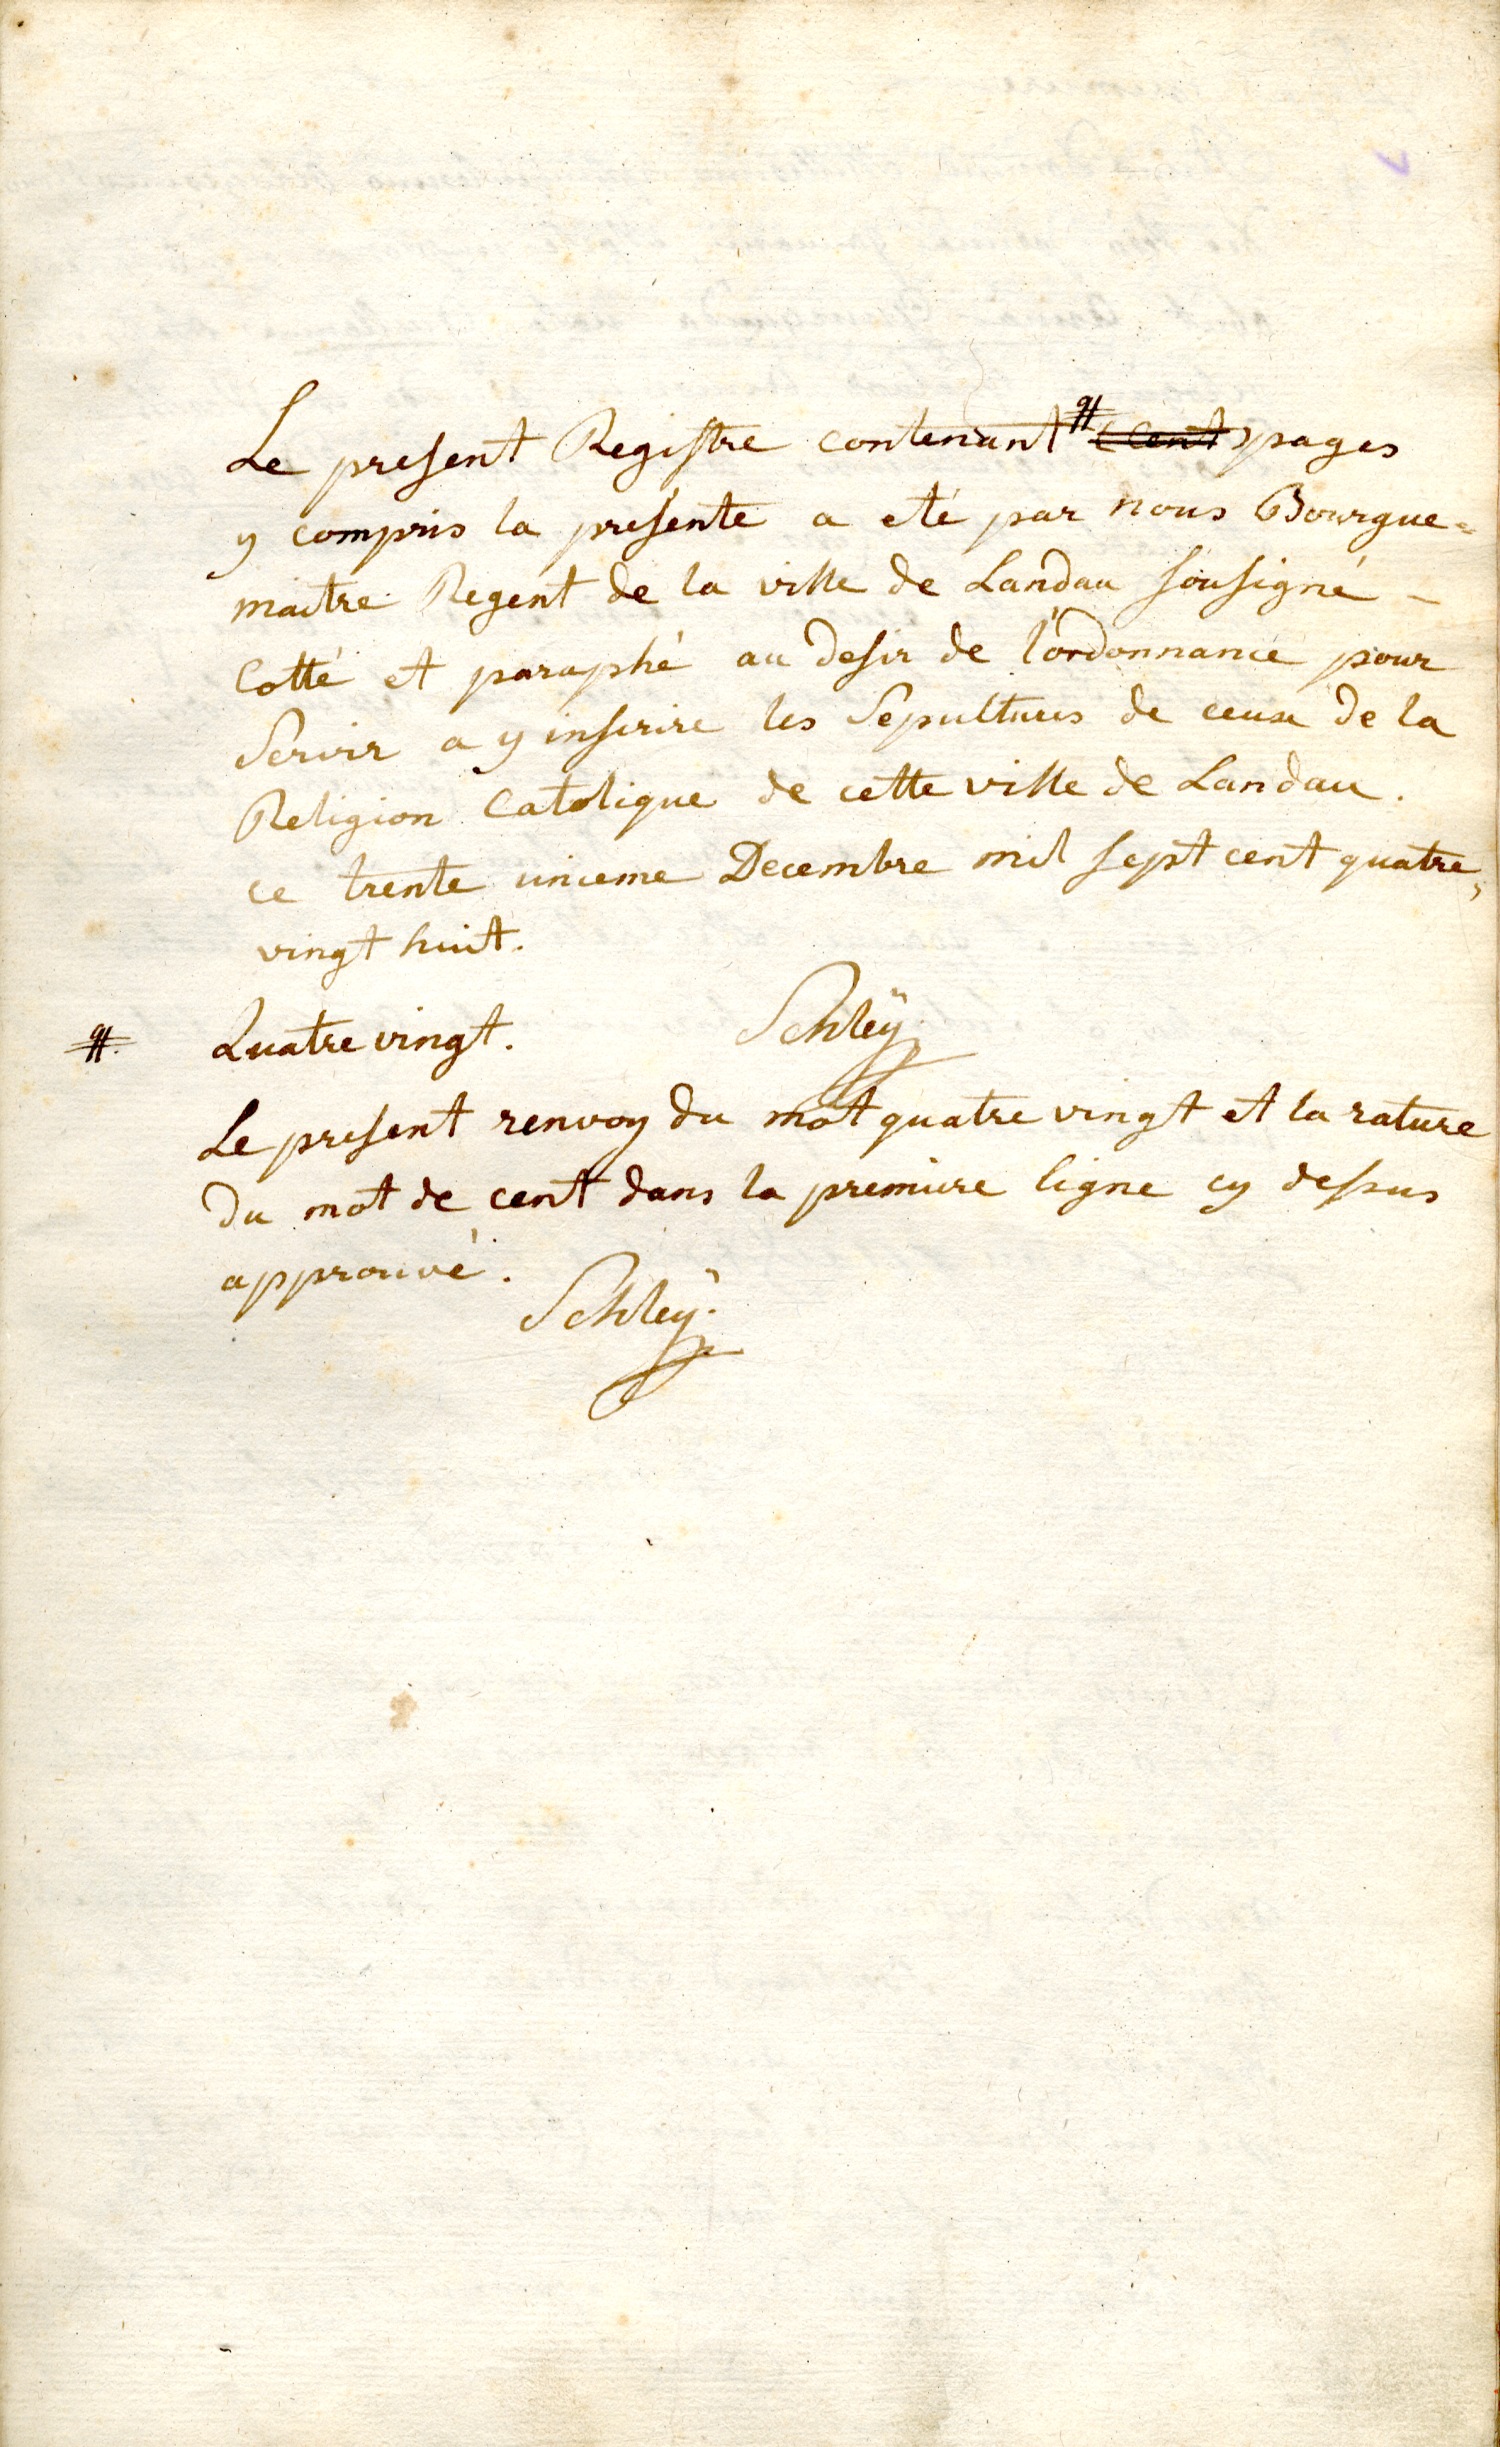 Le present Registre contenant # (cent) pages
y compris la presente a eté par nous Bourgue=
maitre Regent de la ville de Landau sousigné -
Cotté et paraphé au desir de l'ordonnance pour
Servir a y inscrire les Sepultures de ceux de la
Religion Catolique de cette ville de Landau.
ce trente unieme Decembre mil sept cent quatre,
vingt huit.
#. Quatre vingt. Schleÿ.
Le present renvoy du mot quatre vingt et la rature
du mot de cent dans la premiere ligne cy dessus
approuvé.
Schleÿ.